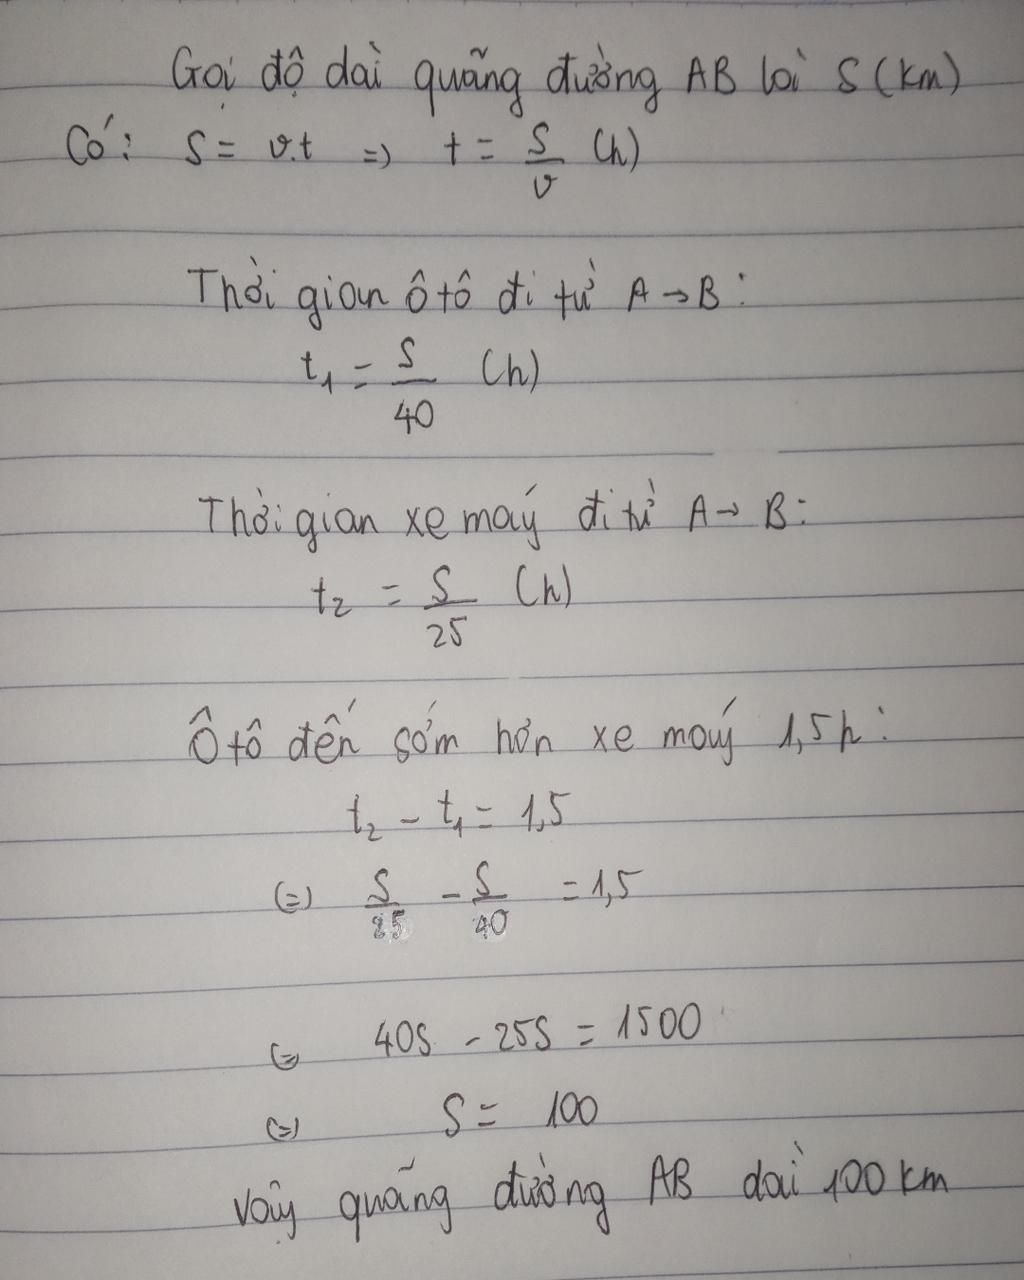 Gọi độ dài quãng đường AB là S (km)
Có: S = v.t => t = S/v (h)
Thời gian ô tô đi từ A → B:
t₁ = S/40 (h)
Thời gian xe máy đi từ A → B:
t₂ = S/25 (h)
Ô tô đến sớm hơn xe máy 1,5h:
t₂ - t₁ = 1,5
(=) S/25 - S/40 = 1,5
(=) 40S - 25S = 1500
(=) S = 100
Vậy quãng đường AB dài 100 km